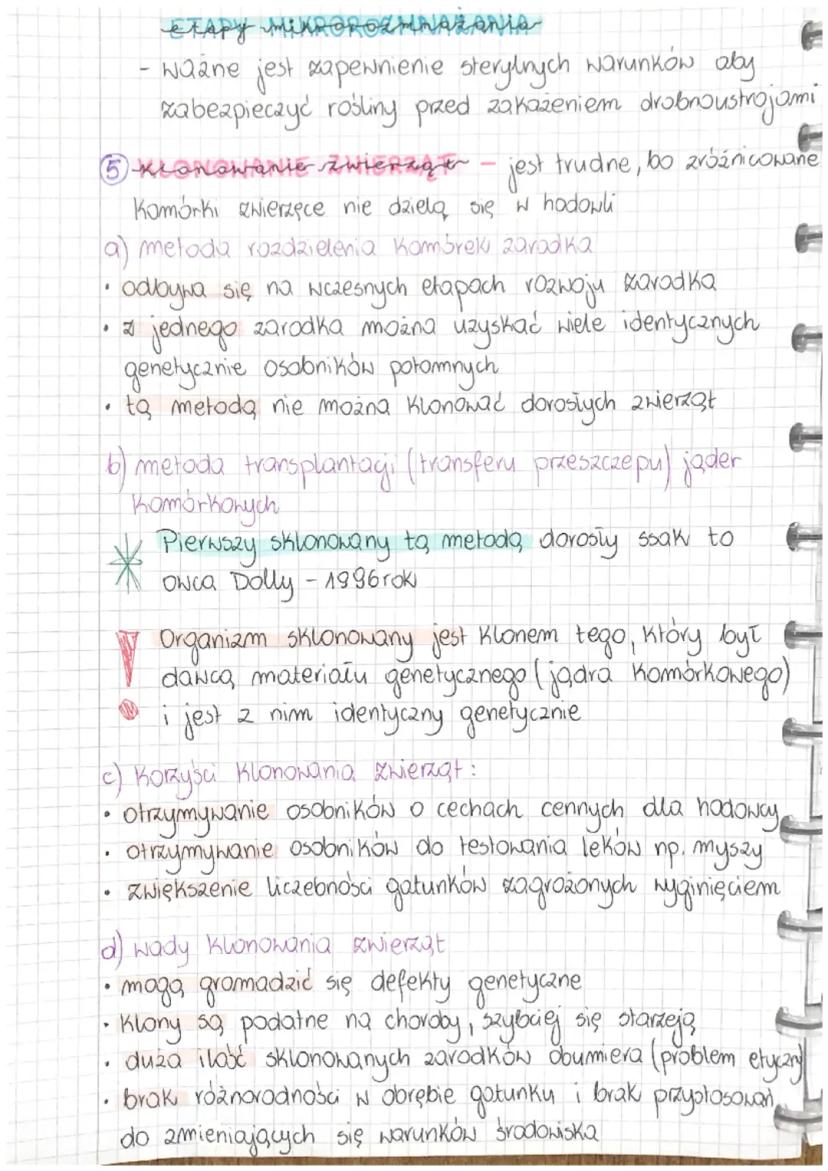 ETAPY MIKROROZMNAŻANIA
- ważne jest zapewnienie sterylnych warunków aby
zabezpieczyć rośliny przed zakażeniem drobnoustrojami
⑤ KLONOWANIE ZWIERZĄT - jest trudne, bo zróżnicowane
komórki zwierzęce nie dzielą się w hodowli
a) metoda rozdzielenia komórek zarodka
• odbywa się na wczesnych etapach rozwoju zarodka
• z jednego zarodka można uzyskać wiele identycznych
genetycznie osobników potomnych
• tą metodą nie można klonować dorosłych zwierząt
b) metoda transplantacji (transferu przeszczepu) jąder
komórkowych
Pierwszy sklonowany tą metodą dorosły ssak to
owca Dolly - 1996 rok
Organizm sklonowany jest klonem tego, który był
dawcą materiału genetycznego (jądra komórkowego)
i jest z nim identyczny genetycznie
c) korzyści klonowania zwierząt:
• otrzymywanie osobników o cechach cennych dla hodowcy
• otrzymywanie osobników do testowania leków np. myszy
• zwiększenie liczebności gatunków zagrożonych wyginięciem
d) wady klonowania zwierząt
• mogą gromadzić się defekty genetyczne
• klony są podatne na choroby, szybciej się starzeją
• duża ilość sklonowanych zarodków obumiera (problem etyczny)
• brak różnorodności w obrębie gatunku i brak przystosowań
do zmieniających się warunków środowiska